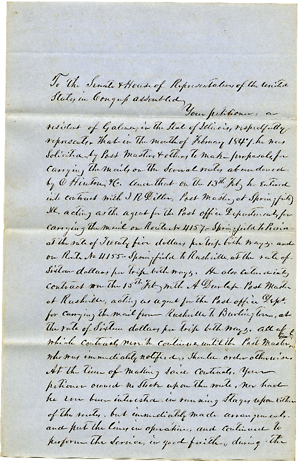 To the Senate & House of Representatives of the United
States in Congress assembled,
Your petitioner, a
resident of Galena, in the State of Illinois, respectfully
represents that in the month of February 1847, he was
solicited by Post Master & others to make proposals for
carrying the mails on the several routes abandoned
by &c. And that on the 13th Feby he entered
into contract with J R Post Master at Springfield
Ills. acting as the agent for the Post office Department, for
carrying the mail on Route No 4157 Springfield to Peoria
at the rate of Twenty five dollars per trip both ways, and
on Route No 4155 Springfield to Rushville at the rate of
Sixteen dollars per trip both ways. He also entered into
Contract on the 15th Feby with A Dunlap Post Master
at Rushville, acting as agent for the Post office Dept.
for carrying the mail from Rushville to Burlington, at
the rate of Sixteen dollars per trip both ways. All of
which contracts were to continue until the Post Master
who was immediately notified, should order otherwise.
At the time of making said contracts, Your
petitioner owned no stock upon the route, nor had
he ever been interested in running Stages upon either
of the routes, but immediately made arrangements
and put the lines in operation, and continued to
perform the Service, in good faith, during the